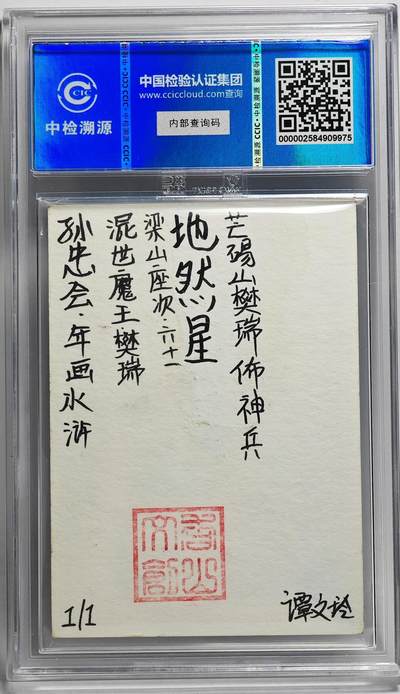 CCIC
中检溯源
中国检验认证集团
www.cciccloud.com查询
内部查询码
000002584909975
芒碭山樊瑞佈神兵
地然星
梁山座次·六十一
混世魔王樊瑞
孙忠会·年画水浒
1/1
谭文玲